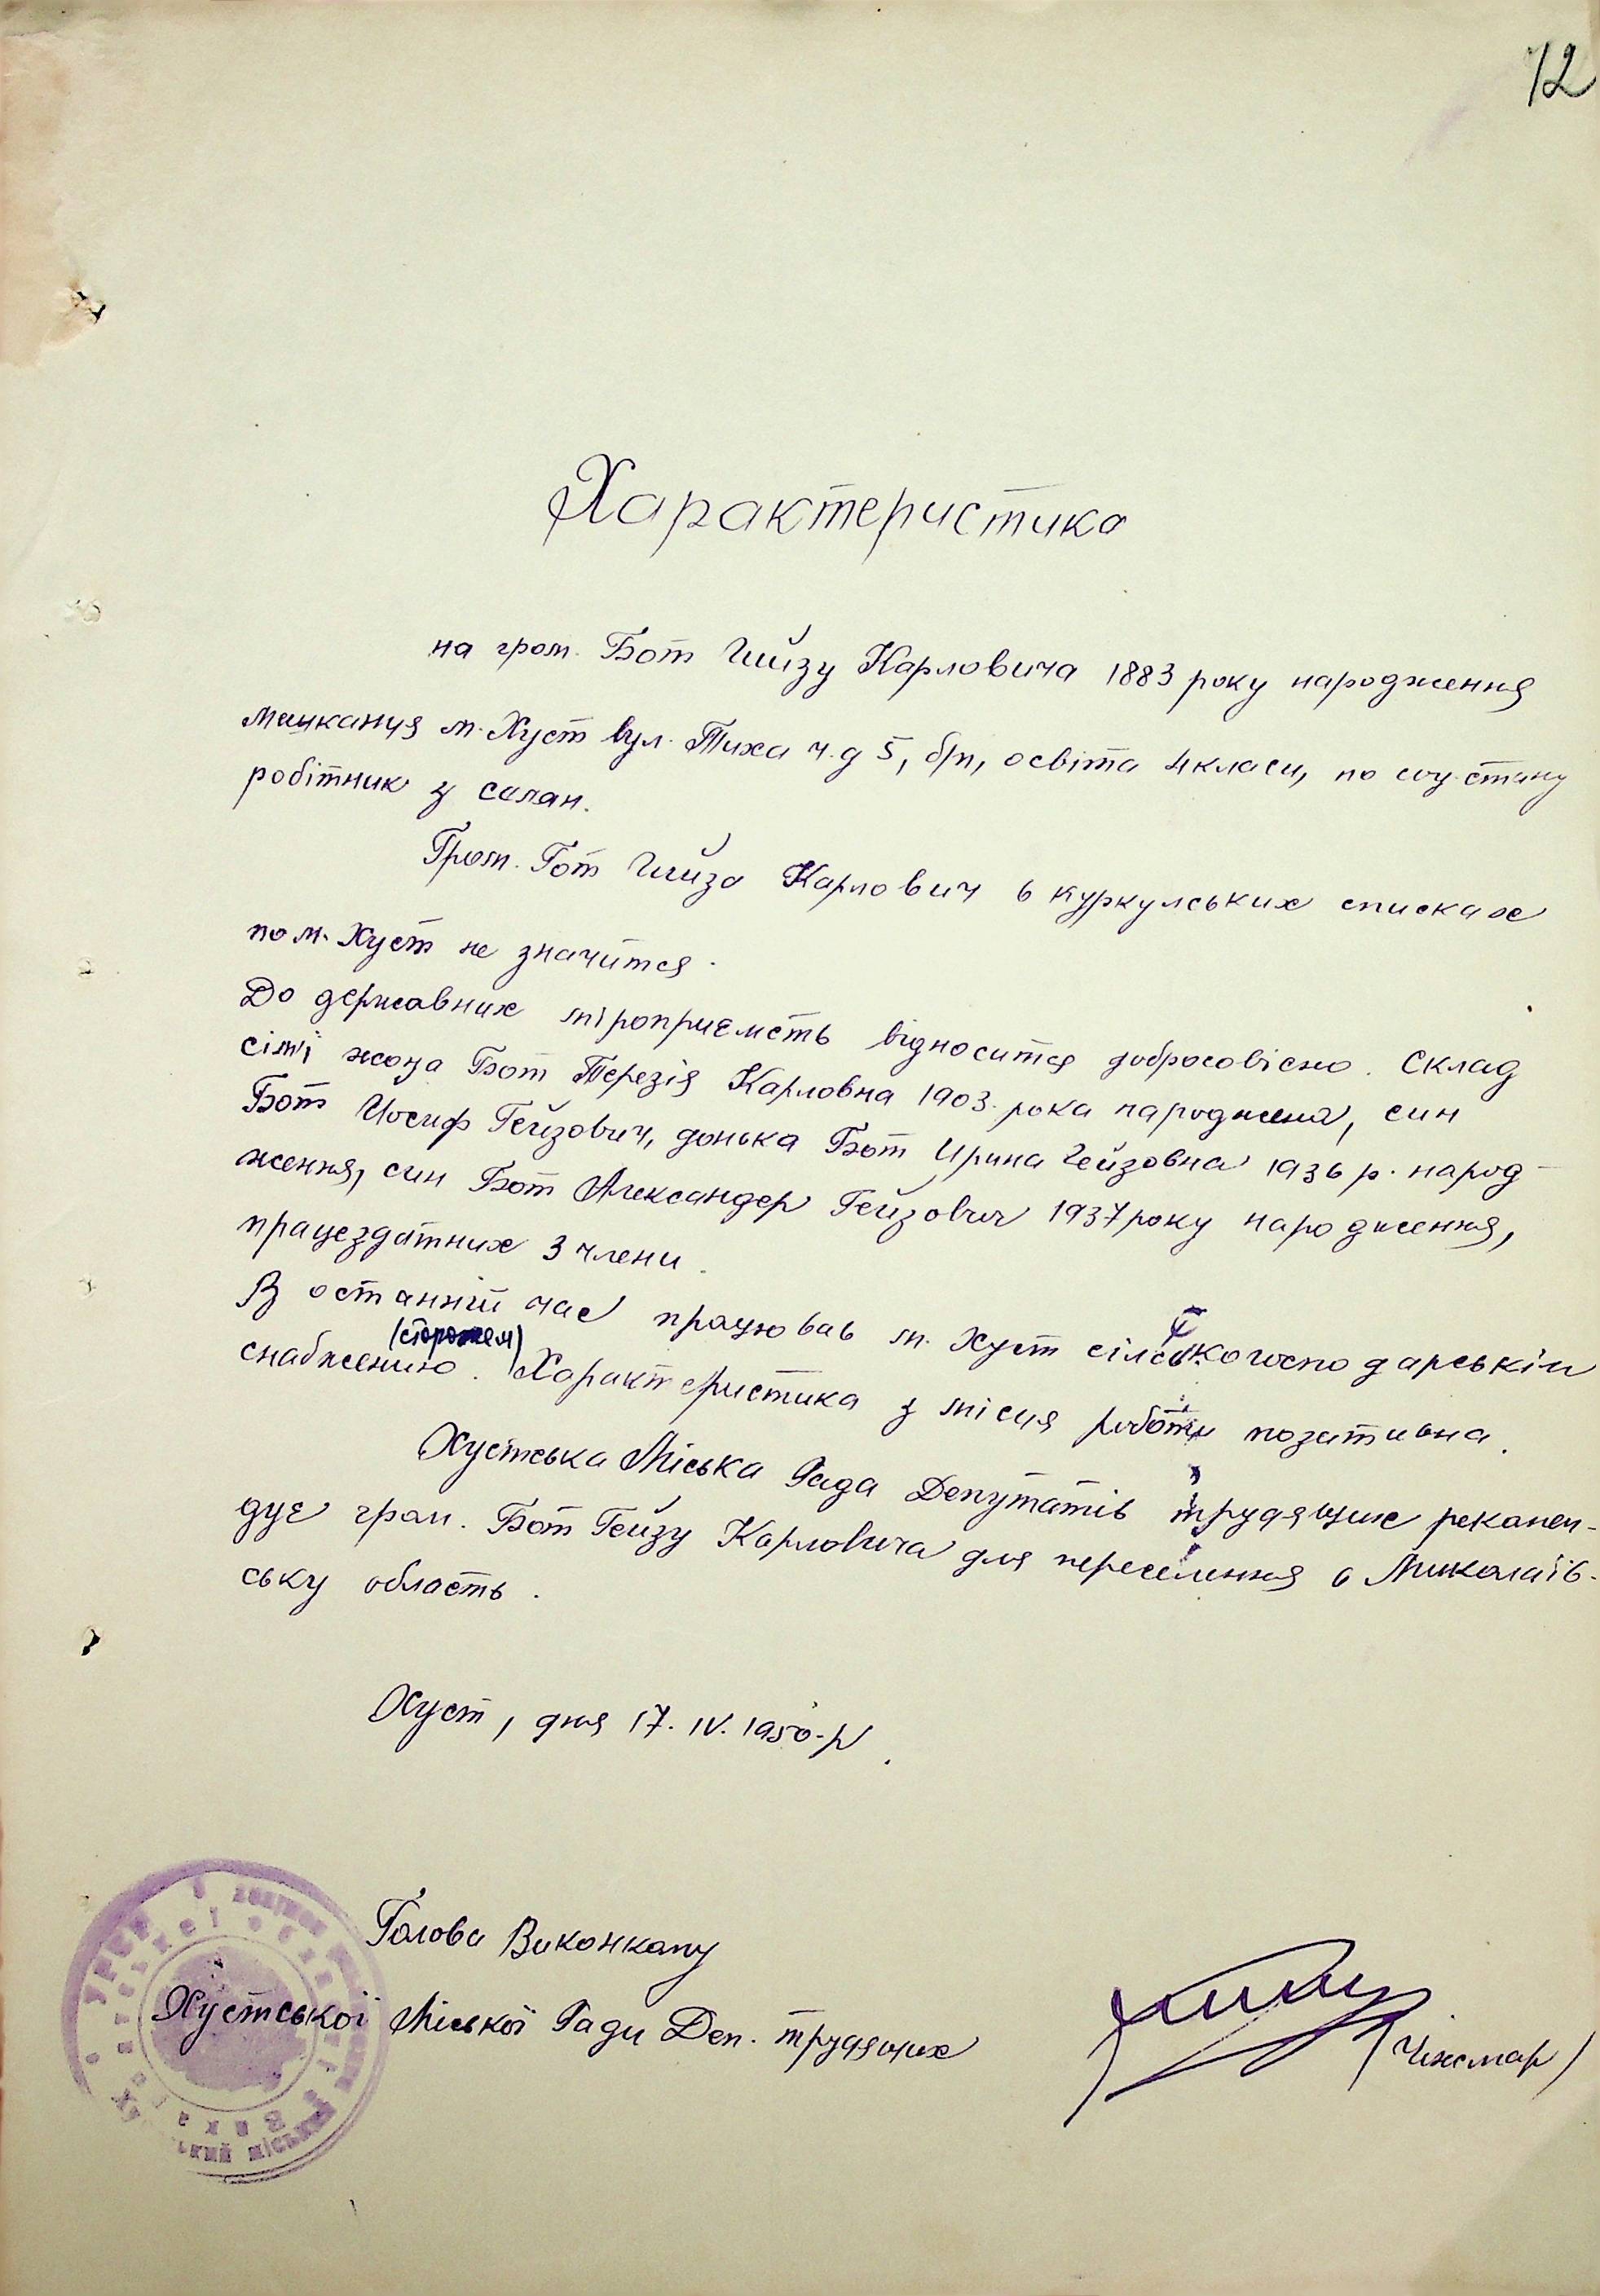 12
Характеристика
на гром. Бот Гейзу Карловича 1883 року народження
мешканця м. Хуст вул. Тиха ч. д 5, б/п, освіта 4 класи, по соц. стану
робітник з селян.
Гром. Бот Гейза Карлович в куркулських списках
по м. Хуст не значится.
До державних міроприємств відносится добросовісно. Склад
сімї жона Бот Терезія Карловна 1903. рока народжена, син
Бот Иосиф Гейзович, донька Бот Ирина Гейзовна 1936 р. народ-
ження, син Бот Александер Гейзович 1937 року народження,
працездатних 3 члени.
В останній час працював м. Хуст сілскогосподарськім
(сторожем)
снабжению. Характеристика з місця роботи позативна.
Хустська Міська Рада Депутатів трудящих рекомен-
дує гром. Бот Гейзу Карловича для переселення в Миколаїв-
ську область.
Хуст, дня 17. IV. 1950. р.
Голова Виконкому
Хустської Міської Ради Деп. трудящих
(Чижмар)
УРСР